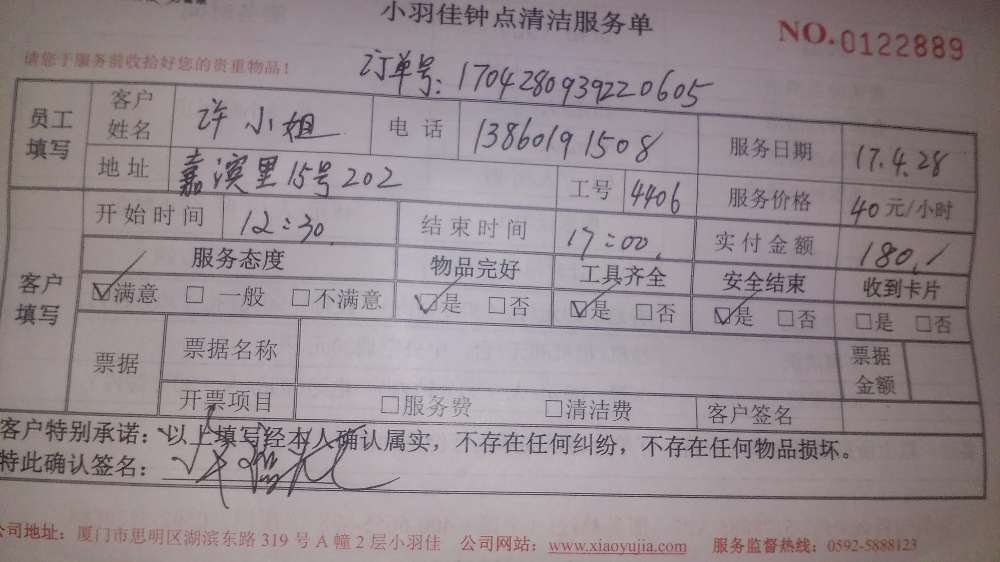 小羽佳钟点清洁服务单
NO.0122889
请您于服务前收拾好您的贵重物品！
订单号：1704280939220605
员工填写 客户姓名 许小姐 电话 13860191508 服务日期 17.4.28
地址 嘉滨里15号202 工号 4406 服务价格 40元/小时
客户填写 开始时间 12:30 结束时间 17:00 实付金额 180.
服务态度 物品完好 工具齐全 安全结束 收到卡片
☑满意 □一般 □不满意 ☑是 □否 ☑是 □否 ☑是 □否 □是 □否
票据 票据名称 票据金额
开票项目 □服务费 □清洁费 客户签名
客户特别承诺：以上填写经本人确认属实，不存在任何纠纷，不存在任何物品损坏。
特此确认签名：
公司地址：厦门市思明区湖滨东路319号A幢2层小羽佳 公司网站：www.xiaoyujia.com 服务监督热线：0592-5888123